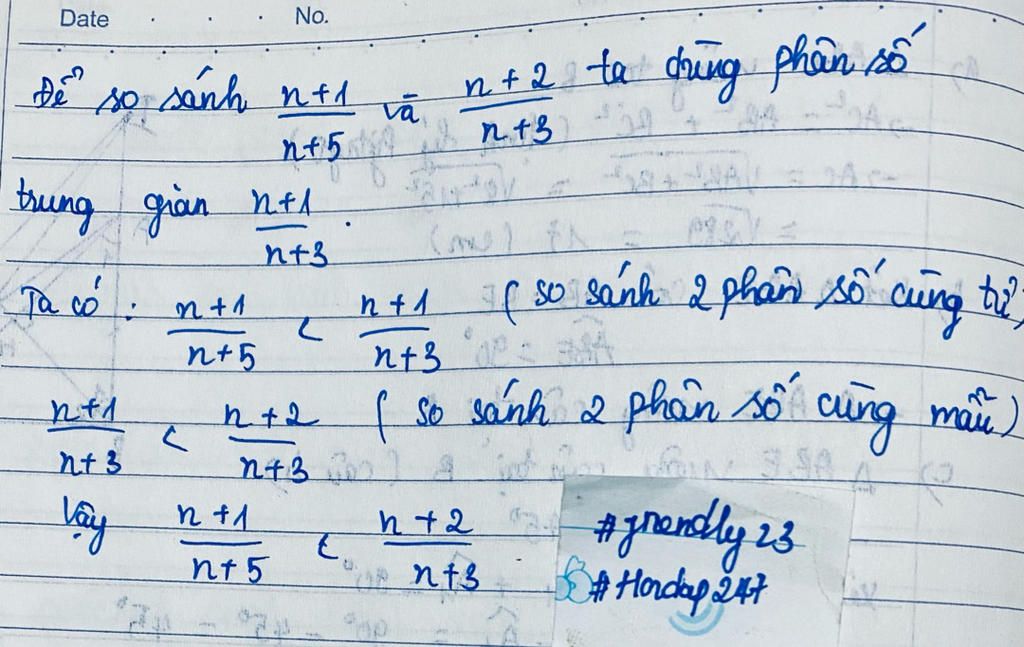 Date No.
Để so sánh n+1/n+5 và n+2/n+3 ta dùng phân số
trung gian n+1/n+3.
Ta có: n+1/n+5 < n+1/n+3 (so sánh 2 phân số cùng tử)
n+1/n+3 < n+2/n+3 (so sánh 2 phân số cùng mẫu)
Vậy n+1/n+5 < n+2/n+3
#friendly23
#Hoidap247